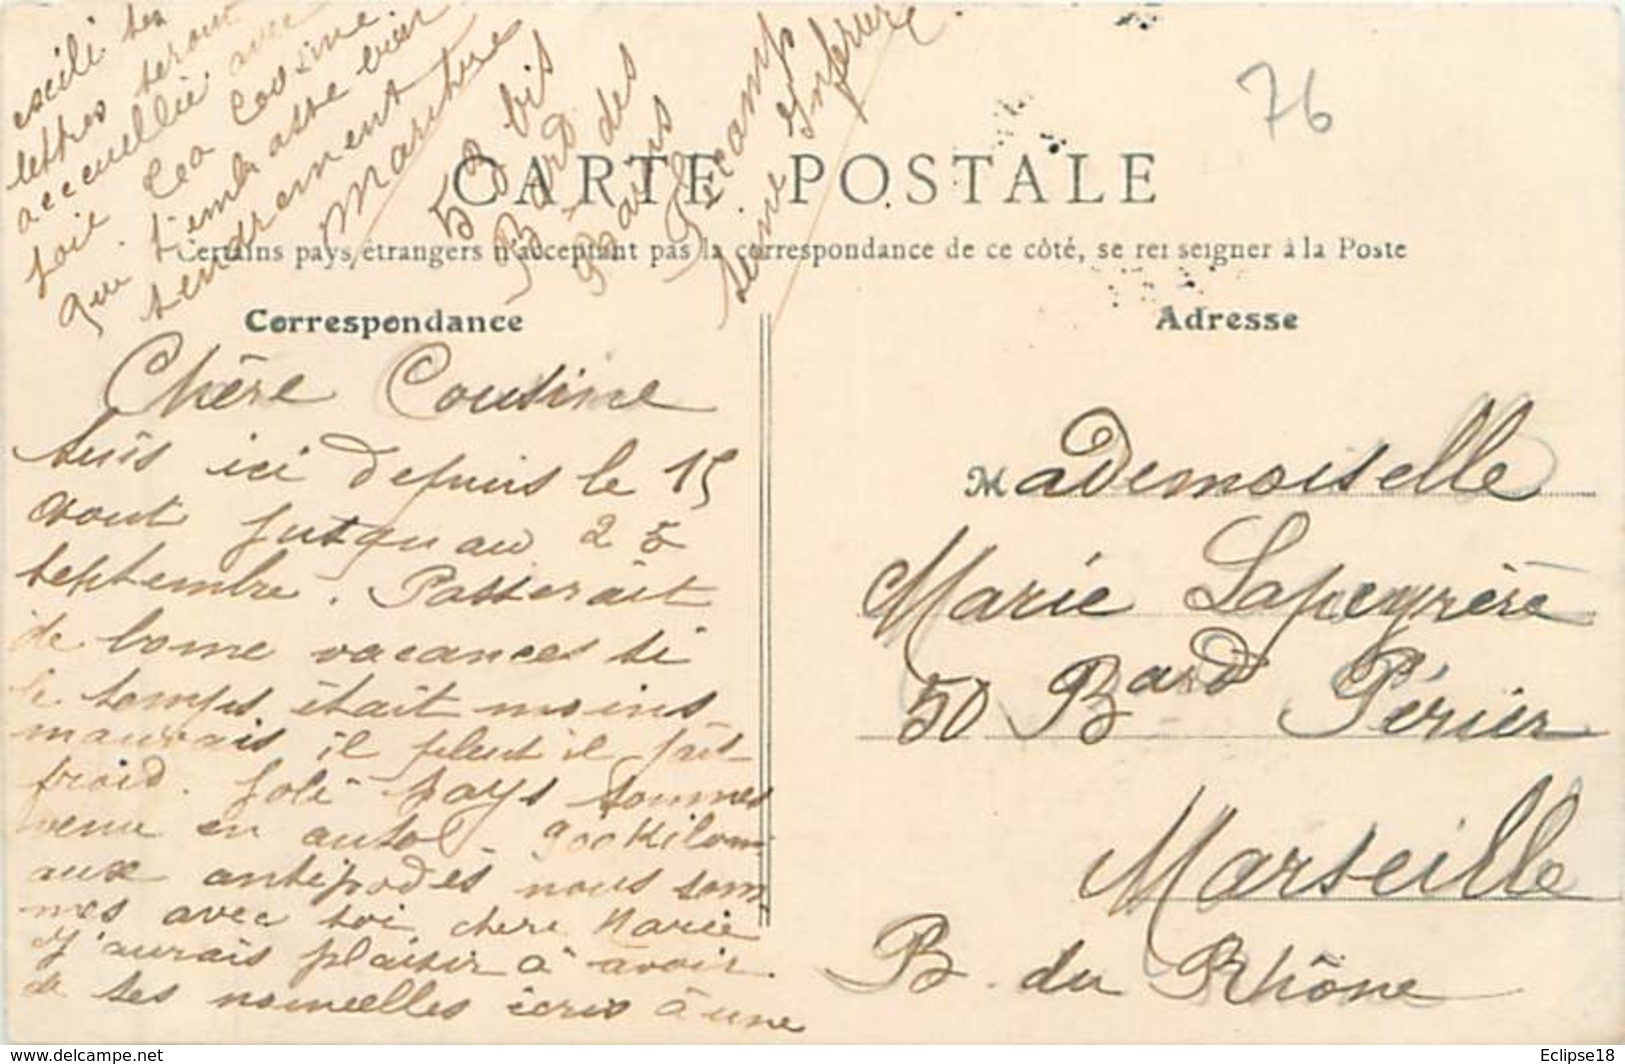 76
CARTE POSTALE
Certains pays étrangers n'acceptent pas la correspondance de ce côté, se renseigner à la Poste
Correspondance
Adresse
Chère Cousine
suis ici depuis le 15
aout jusqu au 25
septembre. Passerait
de bonne vacances si
le temps était moins
mauvais il pleut il fait
froid. joli pays sommes
venu en auto - 900 Kilom
aux antipodes nous som
mes avec toi chere Marie
J'aurais plaisir à avoir
de tes nouvelles écris à une
tes
lettres seront
accueillie avec
joie Ta cousine
qui t'embrasse bien
tendrement
53 bis
Bard des
Bains
Fécamp
Seine Inferure
Mademoiselle
Marie Lapeyrère
50 Bard Périer
Marseille
B. du Rhône
www.delcampe.net
Eclipse18